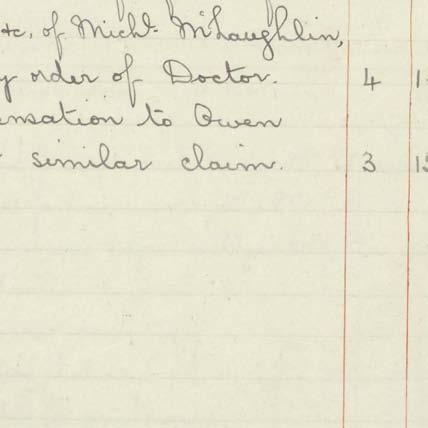 &c, of Michl. McLaughlin,
y order of Doctor. 4 1
ensation to Owen
similar claim. 3 15